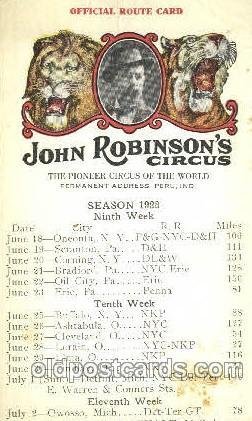 OFFICIAL ROUTE CARD
JOHN ROBINSON'S
CIRCUS
THE PIONEER CIRCUS OF THE WORLD
PERMANENT ADDRESS, PERU, IND
SEASON 1928
Ninth Week
Date City R. R. Miles
June 18—Oneonta, N. Y. D-H 106
June 19—Scranton, Pa. D&H 111
June 20—Corning, N. Y. DL&W 131
June 21—Bradford, Pa. NYC Erie 128
June 22—Oil City, Pa. Erie 150
June 23—Erie, Pa. Penna 84
Tenth Week
June 25—Buffalo, N. Y. NKP 88
June 26—Ashtabula, O. NYC 127
June 27—Cleveland, O. NYC 54
June 28—Lorain, O. NYC-NKP 27
O. NKP 116
oldpostcards.com
July 1 Detroit, Mich.
E. Warren & Conners Sts.
Eleventh Week
July 2—Owosso, Mich. Det-Ter-GT 78